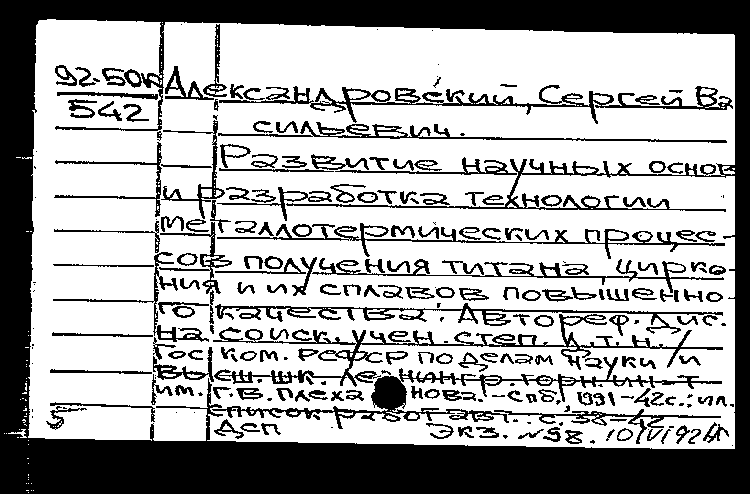 92-50к Александровский, Сергей Ва
542
сильевич.
Развитие научных основ
и разработка технологии
металлотермических процес-
сов получения титана, цирко-
ния и их сплавов повышенно-
го качества: Автореф. дис.
на соиск. учен. степ. д.т.н. /
Гос ком. РСФСР по делам науки и
высш. шк. Ленингр. горн. ин-т
им. Г.В. Плеханова. - Спб., 1991 - 42с.: ил.
список работ авт.: с. 38-42
5 ДСП Экз. №98. 10/VI 92